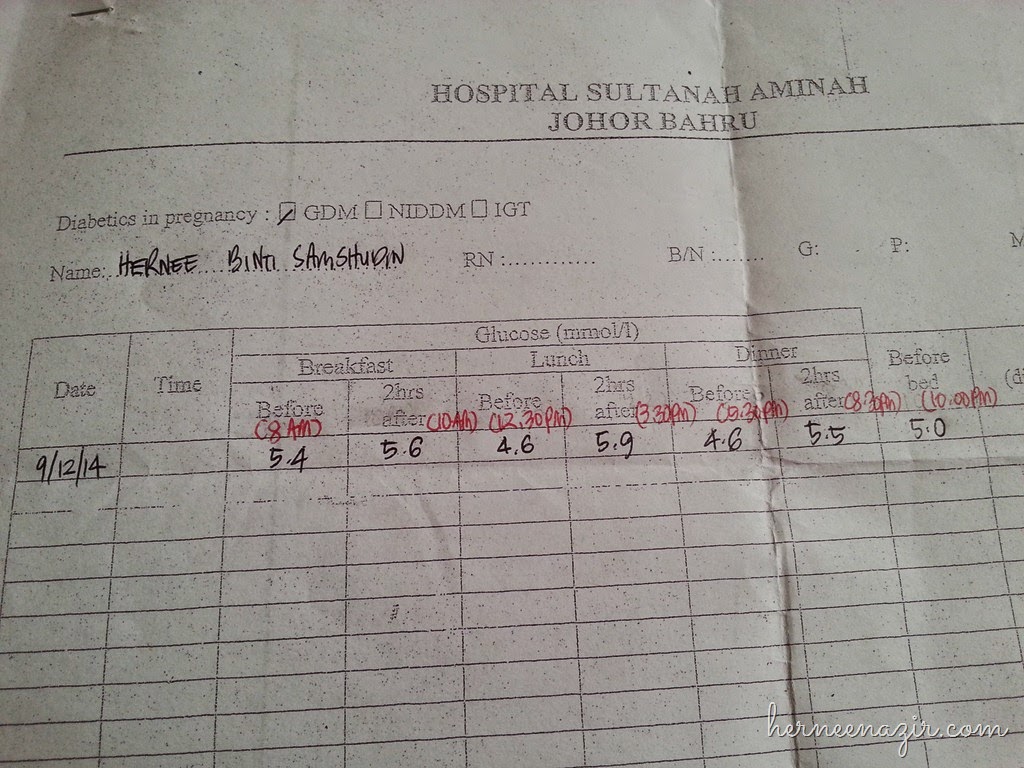 HOSPITAL SULTANAH AMINAH
JOHOR BAHRU
Diabetics in pregnancy : GDM NIDDM IGT
Name:..HERNEE....BINTI..SAMSHUDIN RN :............ B/N :....... G: P: M
Glucose (mmol/l)
Breakfast Lunch Dinner
Date Time Before 2hrs after Before 2hrs after Before 2hrs after Before bed (d
(8 AM) (10 AM) (12.30 PM) (3.30 PM) (5.30 PM) (8.30 PM) (10.00 PM)
9/12/14 5.4 5.6 4.6 5.9 4.6 5.5 5.0
herneenazir.com